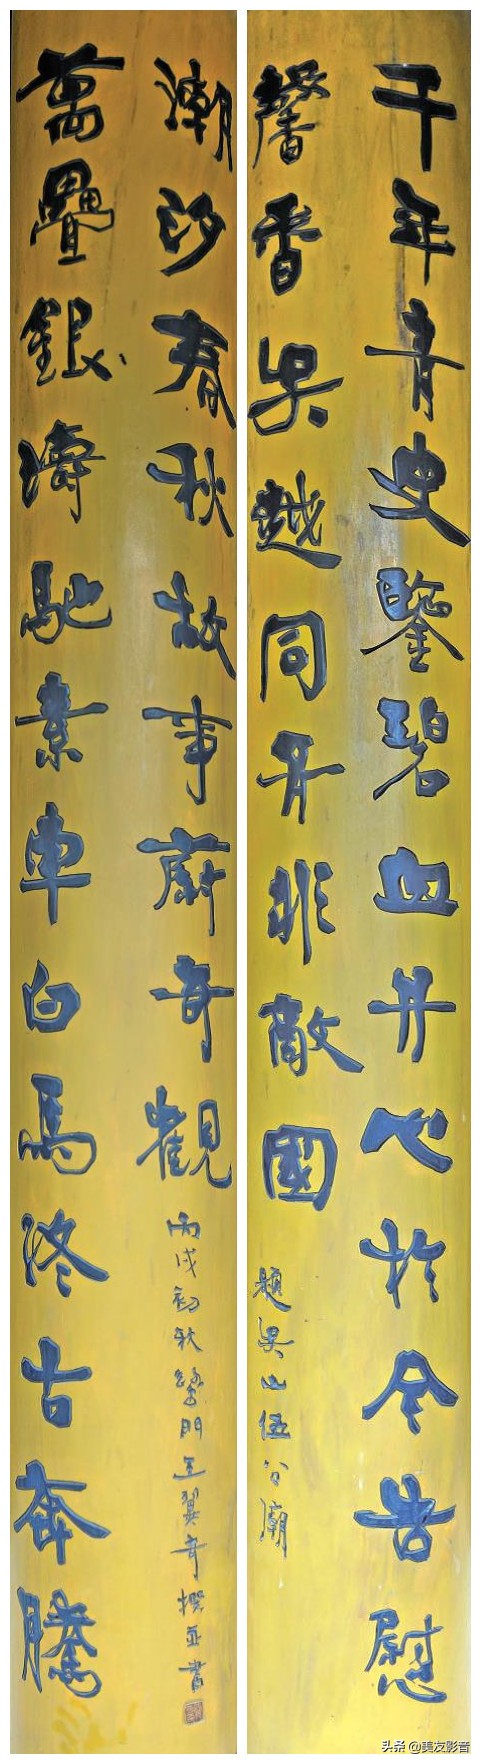 千年青史鑒碧血丹心於今告慰
馨香吴越同升非敵國
題吴山伍公廟
萬疊銀濤馳素車白馬終古奔騰
潮汐春秋故事蔚奇觀
丙戌初秋鷺門王翼奇撰並書
头条 @美友影音